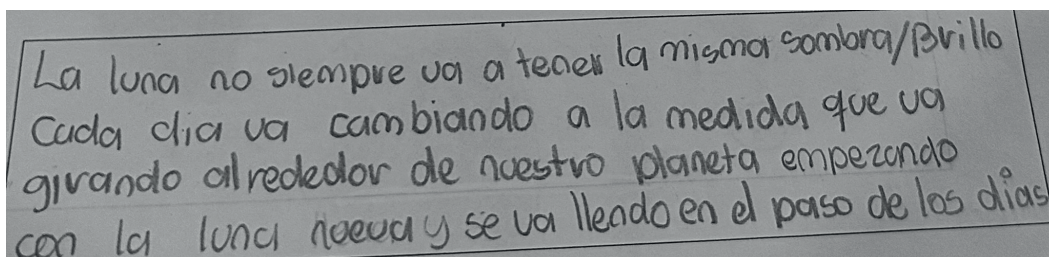 La luna no siempre va a tener la misma sombra/Brillo
Cada dia va cambiando a la medida que va
girando alrededor de nuestro planeta empezando
con la luna nueva y se va llendo en el paso de los días